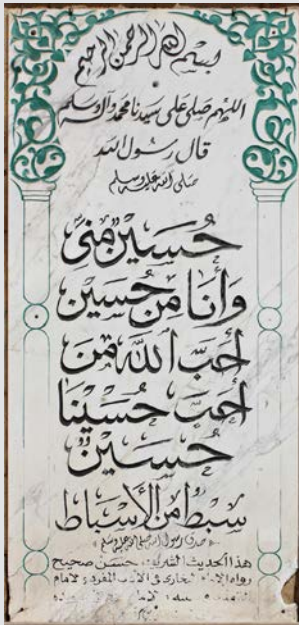 بسم الله الرحمن الرحيم
اللهم صلي على سيدنا محمد وآله وسلم
قال رسول الله
صلى الله عليه وسلم
حُسَين مِنّي
وَأنَا مِنْ حُسَين
أَحَبَّ اللهَ مَن
أَحَبَّ حُسَينَا
حُسَين
سبط من الأسباط
صدق رسول الله صلى الله عليه وسلم
هذا الحديث الشريف حسن صحيح
رواه الإمام البخاري في الأدب المفرد والإمام